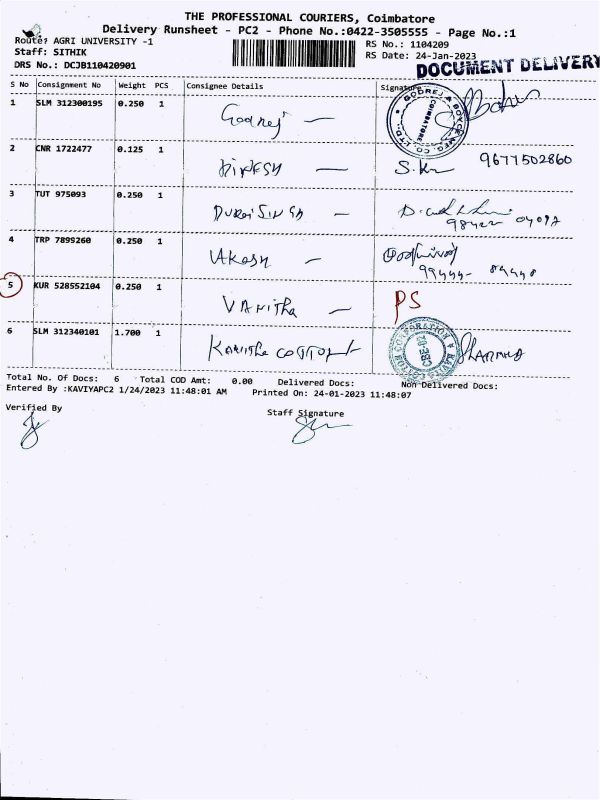 THE PROFESSIONAL COURIERS, Coimbatore
Delivery Runsheet - PC2 - Phone No.:0422-3505555 - Page No.:1
Route: AGRI UNIVERSITY -1
Staff: SITHIK
DRS No.: DCJB110420901
RS No.: 1104209
RS Date: 24-Jan-2023
DOCUMENT DELIVERY
S No Consignment No Weight PCS Consignee Details Signature
1 SLM 312300195 0.250 1 Godrej —
GODREJ & BOYCE MFG. CO. LTD. COIMBATORE
2 CNR 1722477 0.125 1 DINESH — 9677502860
3 TUT 975093 0.250 1 DURAISINGH —
4 TRP 7899260 0.250 1 VAKESH —
5 KUR 528552104 0.250 1 VANITHA — PS
6 SLM 312340101 1.700 1 Kavitha COTTON
CORPORATION CBE-02
Total No. Of Docs: 6 Total COD Amt: 0.00 Delivered Docs: Non Delivered Docs:
Entered By :KAVIYAPC2 1/24/2023 11:48:01 AM Printed On: 24-01-2023 11:48:07
Verified By Staff Signature